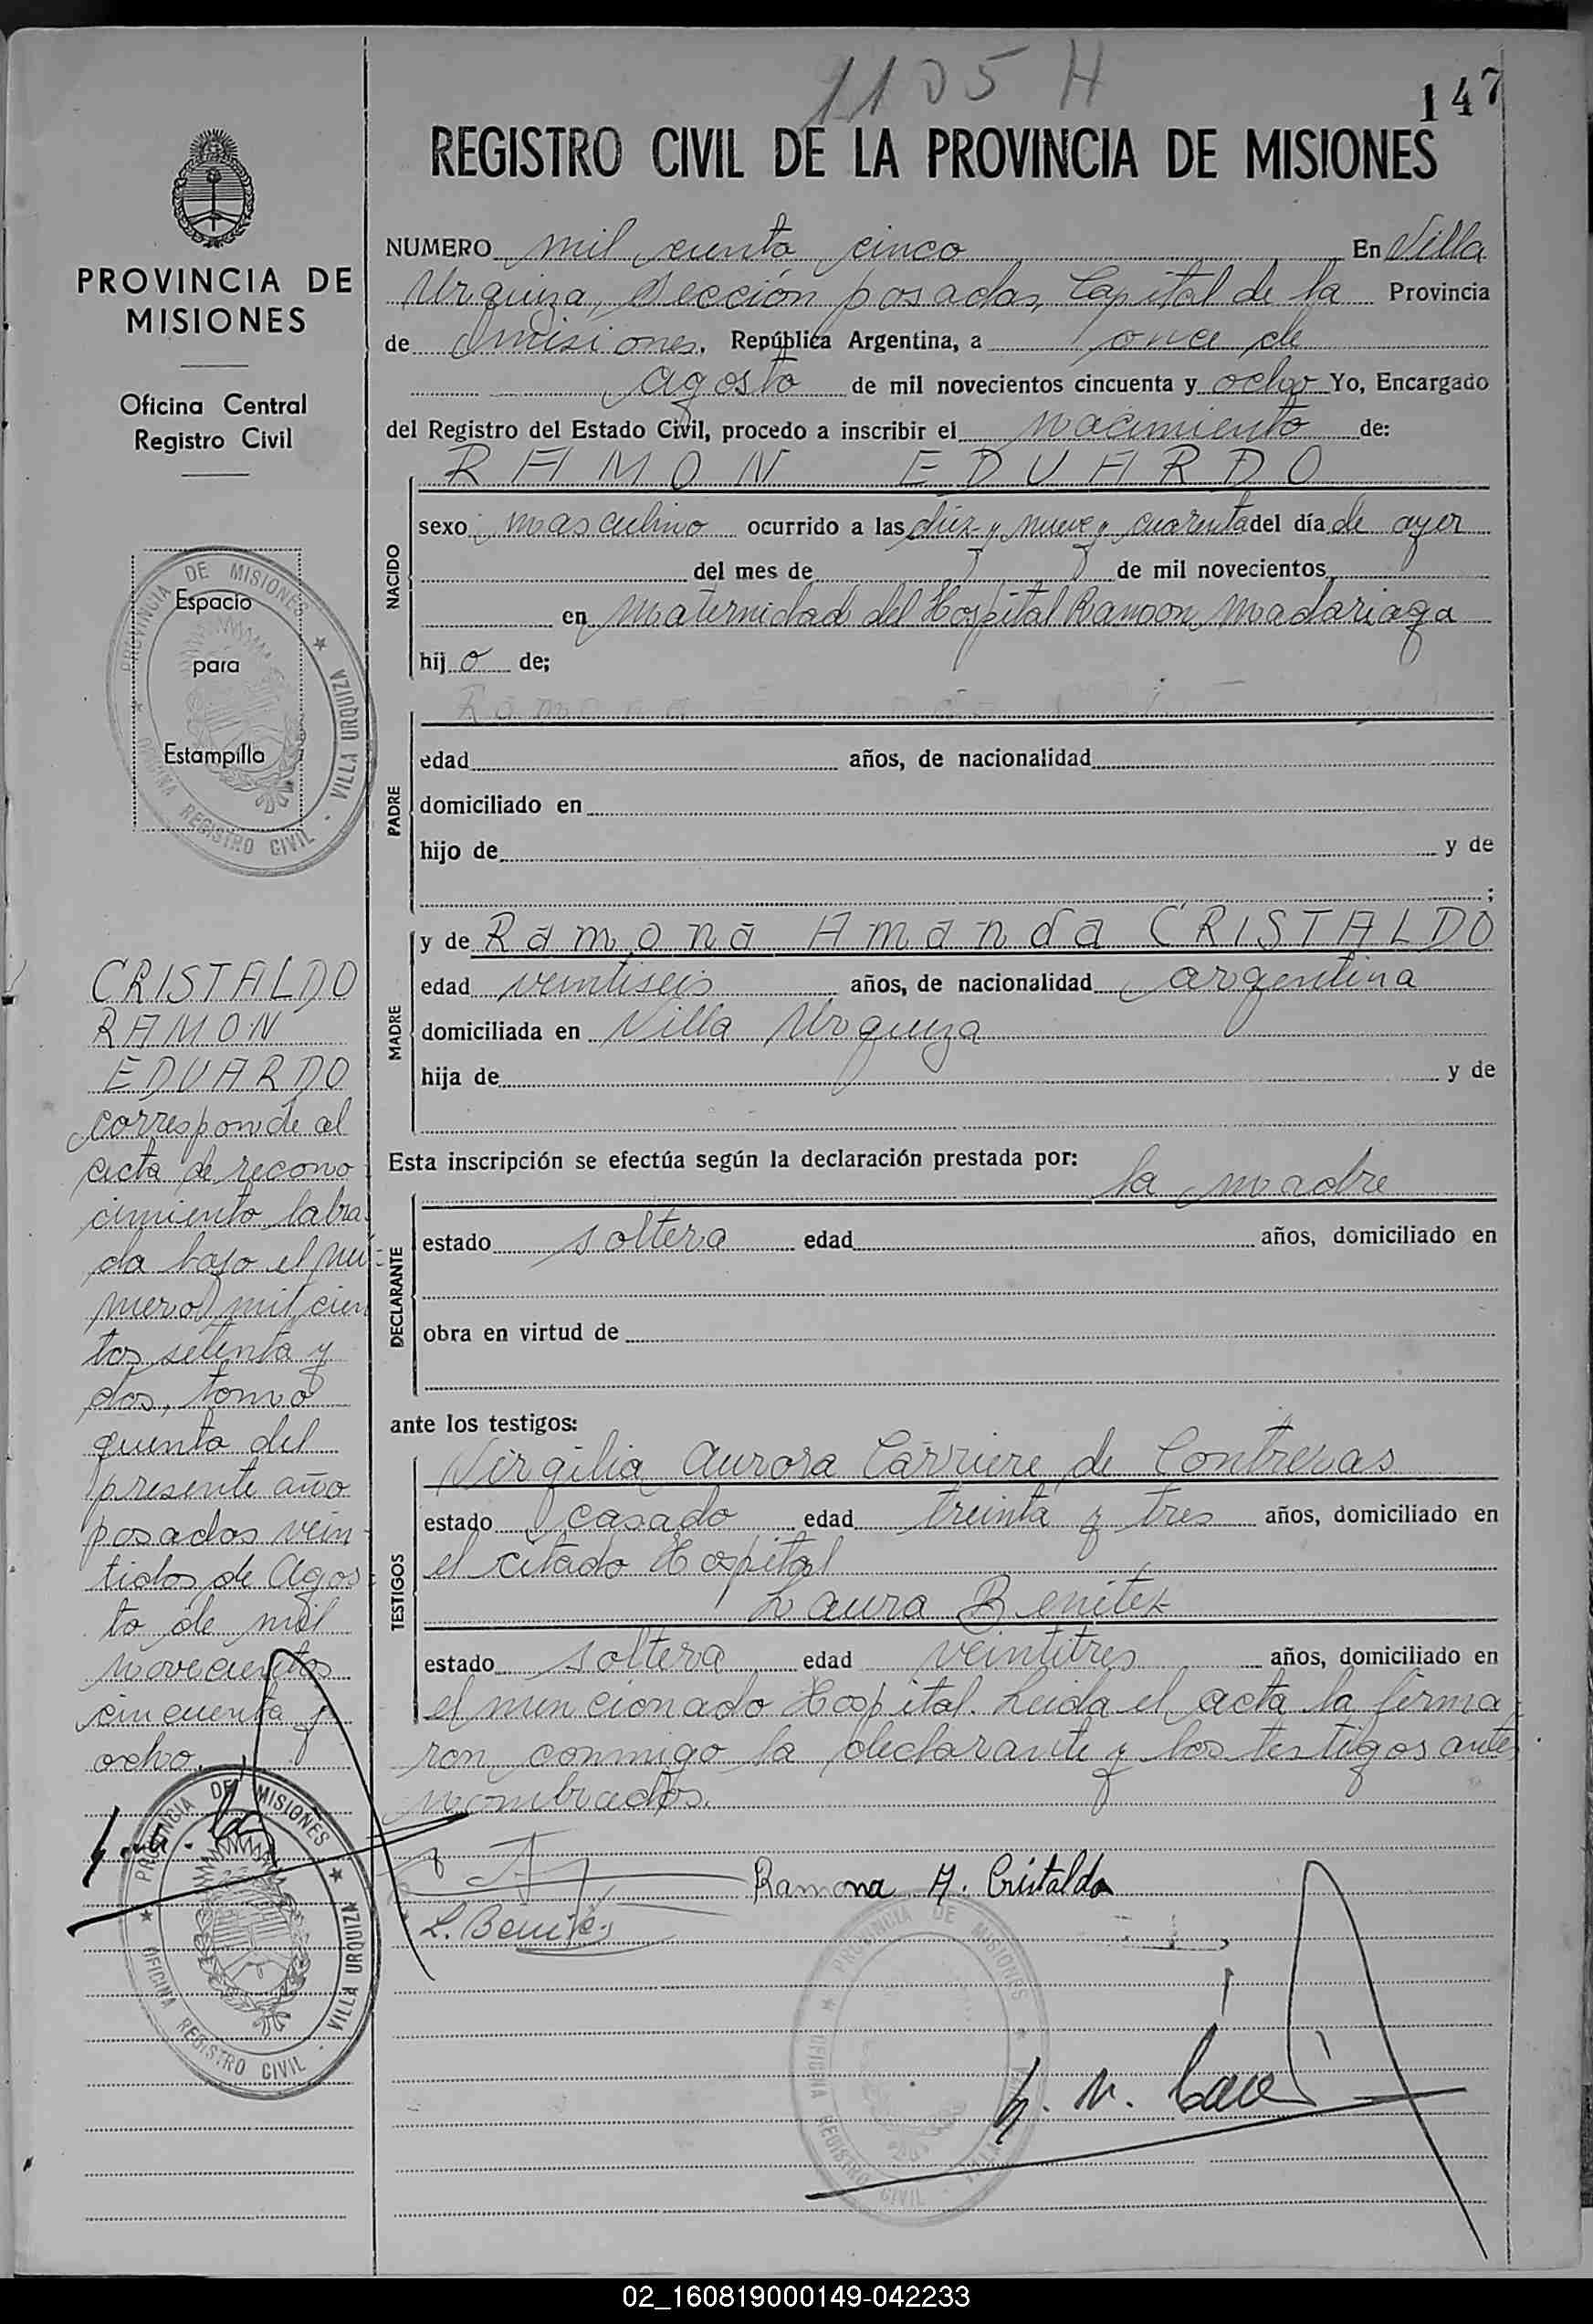 1105 H
147
REGISTRO CIVIL DE LA PROVINCIA DE MISIONES
PROVINCIA DE
MISIONES
Oficina Central
Registro Civil
Espacio
para
Estampilla
PROVINCIA DE MISIONES ★ VILLA URQUIZA · OFICINA REGISTRO CIVIL
NUMERO mil ciento cinco En Villa
Urquiza, Sección posadas, Capital de la Provincia
de misiones, República Argentina, a once de
agosto de mil novecientos cincuenta y ocho Yo, Encargado
del Registro del Estado Civil, procedo a inscribir el nacimiento de:
RAMON EDUARDO
NACIDO
sexo masculino ocurrido a las diez y nueve y cuarenta del día de ayer
del mes de de mil novecientos
en maternidad del Hospital Ramon Madariaga
hij o de;
PADRE
edad años, de nacionalidad
domiciliado en
hijo de y de
;
MADRE
y de Ramona Amanda CRISTALDO
edad veintiseis años, de nacionalidad argentina
domiciliada en Villa Urquiza
hija de y de
Esta inscripción se efectúa según la declaración prestada por:
la madre
DECLARANTE
estado soltera edad años, domiciliado en
obra en virtud de
ante los testigos:
TESTIGOS
Virgilia Aurora Carriere de Contreras
estado casado edad treinta y tres años, domiciliado en
el citado Hospital
Laura Benitez
estado soltera edad veintitres años, domiciliado en
el mencionado Hospital. Leida el acta la firma
ron conmigo la declarante y los testigos antes
nombrados.
Ramona A. Cristaldo
L. Benitez
CRISTALDO
RAMON
EDUARDO
corresponde al
acta de recono
cimiento labra
da bajo el nú-
mero mil cien
tos setenta y
dos, tomo
quinto del
presente año
posadas vein
tidos de Agos
to de mil
novecientos
cincuenta y
ocho.
PROVINCIA DE MISIONES ★ VILLA URQUIZA · OFICINA REGISTRO CIVIL ★
PROVINCIA DE MISIONES ★ OFICINA REGISTRO CIVIL
02_160819000149-042233